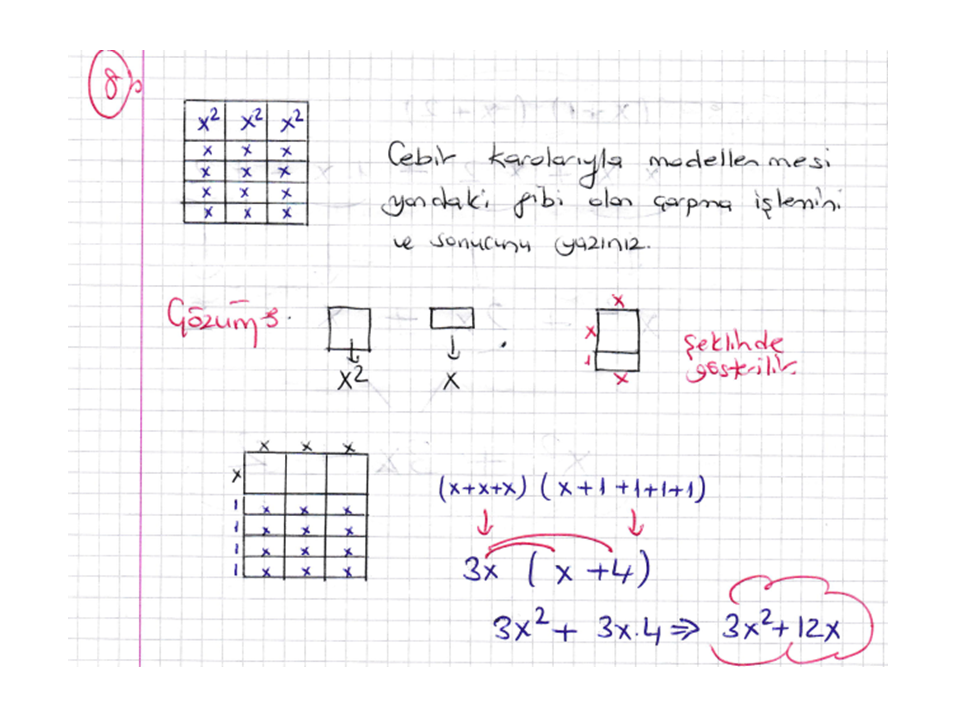 8)
x² x² x²
x x x
x x x
x x x
x x x
Cebir karolarıyla modellenmesi
yandaki gibi olan çarpma işlemini
ve sonucunu yazınız.
Çözüm:
x² x
x
x
1
x
şeklinde
gösterilir.
x x x
x
1 x x x
1 x x x
1 x x x
1 x x x
(x+x+x) (x+1+1+1+1)
3x (x+4)
3x² + 3x.4 ⇒ 3x²+12x